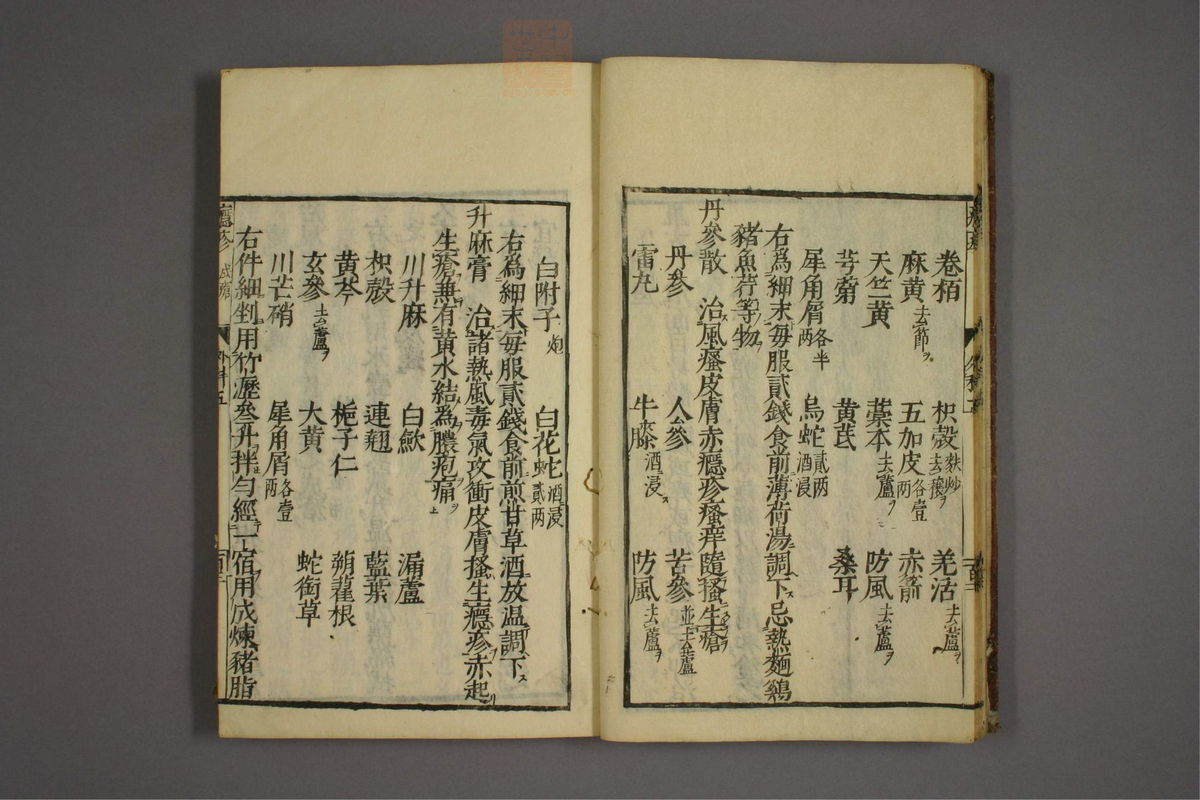 卷栢 枳殼麩炒去穰ヲ 羌活去蘆ヲ
麻黃去節ヲ 五加皮各壹两 赤箭
天竺黃 藁本去蘆ヲ 防風去蘆ヲ
芎藭 黃芪 桑耳
犀角屑各半两 烏蛇酒浸貳两
右爲細末每服貳錢食前薄荷湯調下忌熱麵鷄
猪魚荇等物
丹參散 治風瘙皮膚赤癮疹瘙痒隨搔生瘡
丹參 人參 苦參並去蘆
雷丸 牛膝酒浸 防風去蘆ヲ
白附子炮 白花蛇酒浸貳两
右爲細末每服貳錢食前煎甘草酒放温調下
升麻膏 治諸熱風毒氣攻衝皮膚搔生癮疹赤起
生瘡兼有黃水結爲膿疱痛
川升麻 白歛 漏蘆
枳殼 連翹 藍葉
黃芩 梔子仁 蒴藋根
玄參去蘆ヲ 大黃 蛇銜草
川芒硝 犀角屑各壹两
右件細剉用竹瀝叄升拌匀經一宿用成煉豬脂